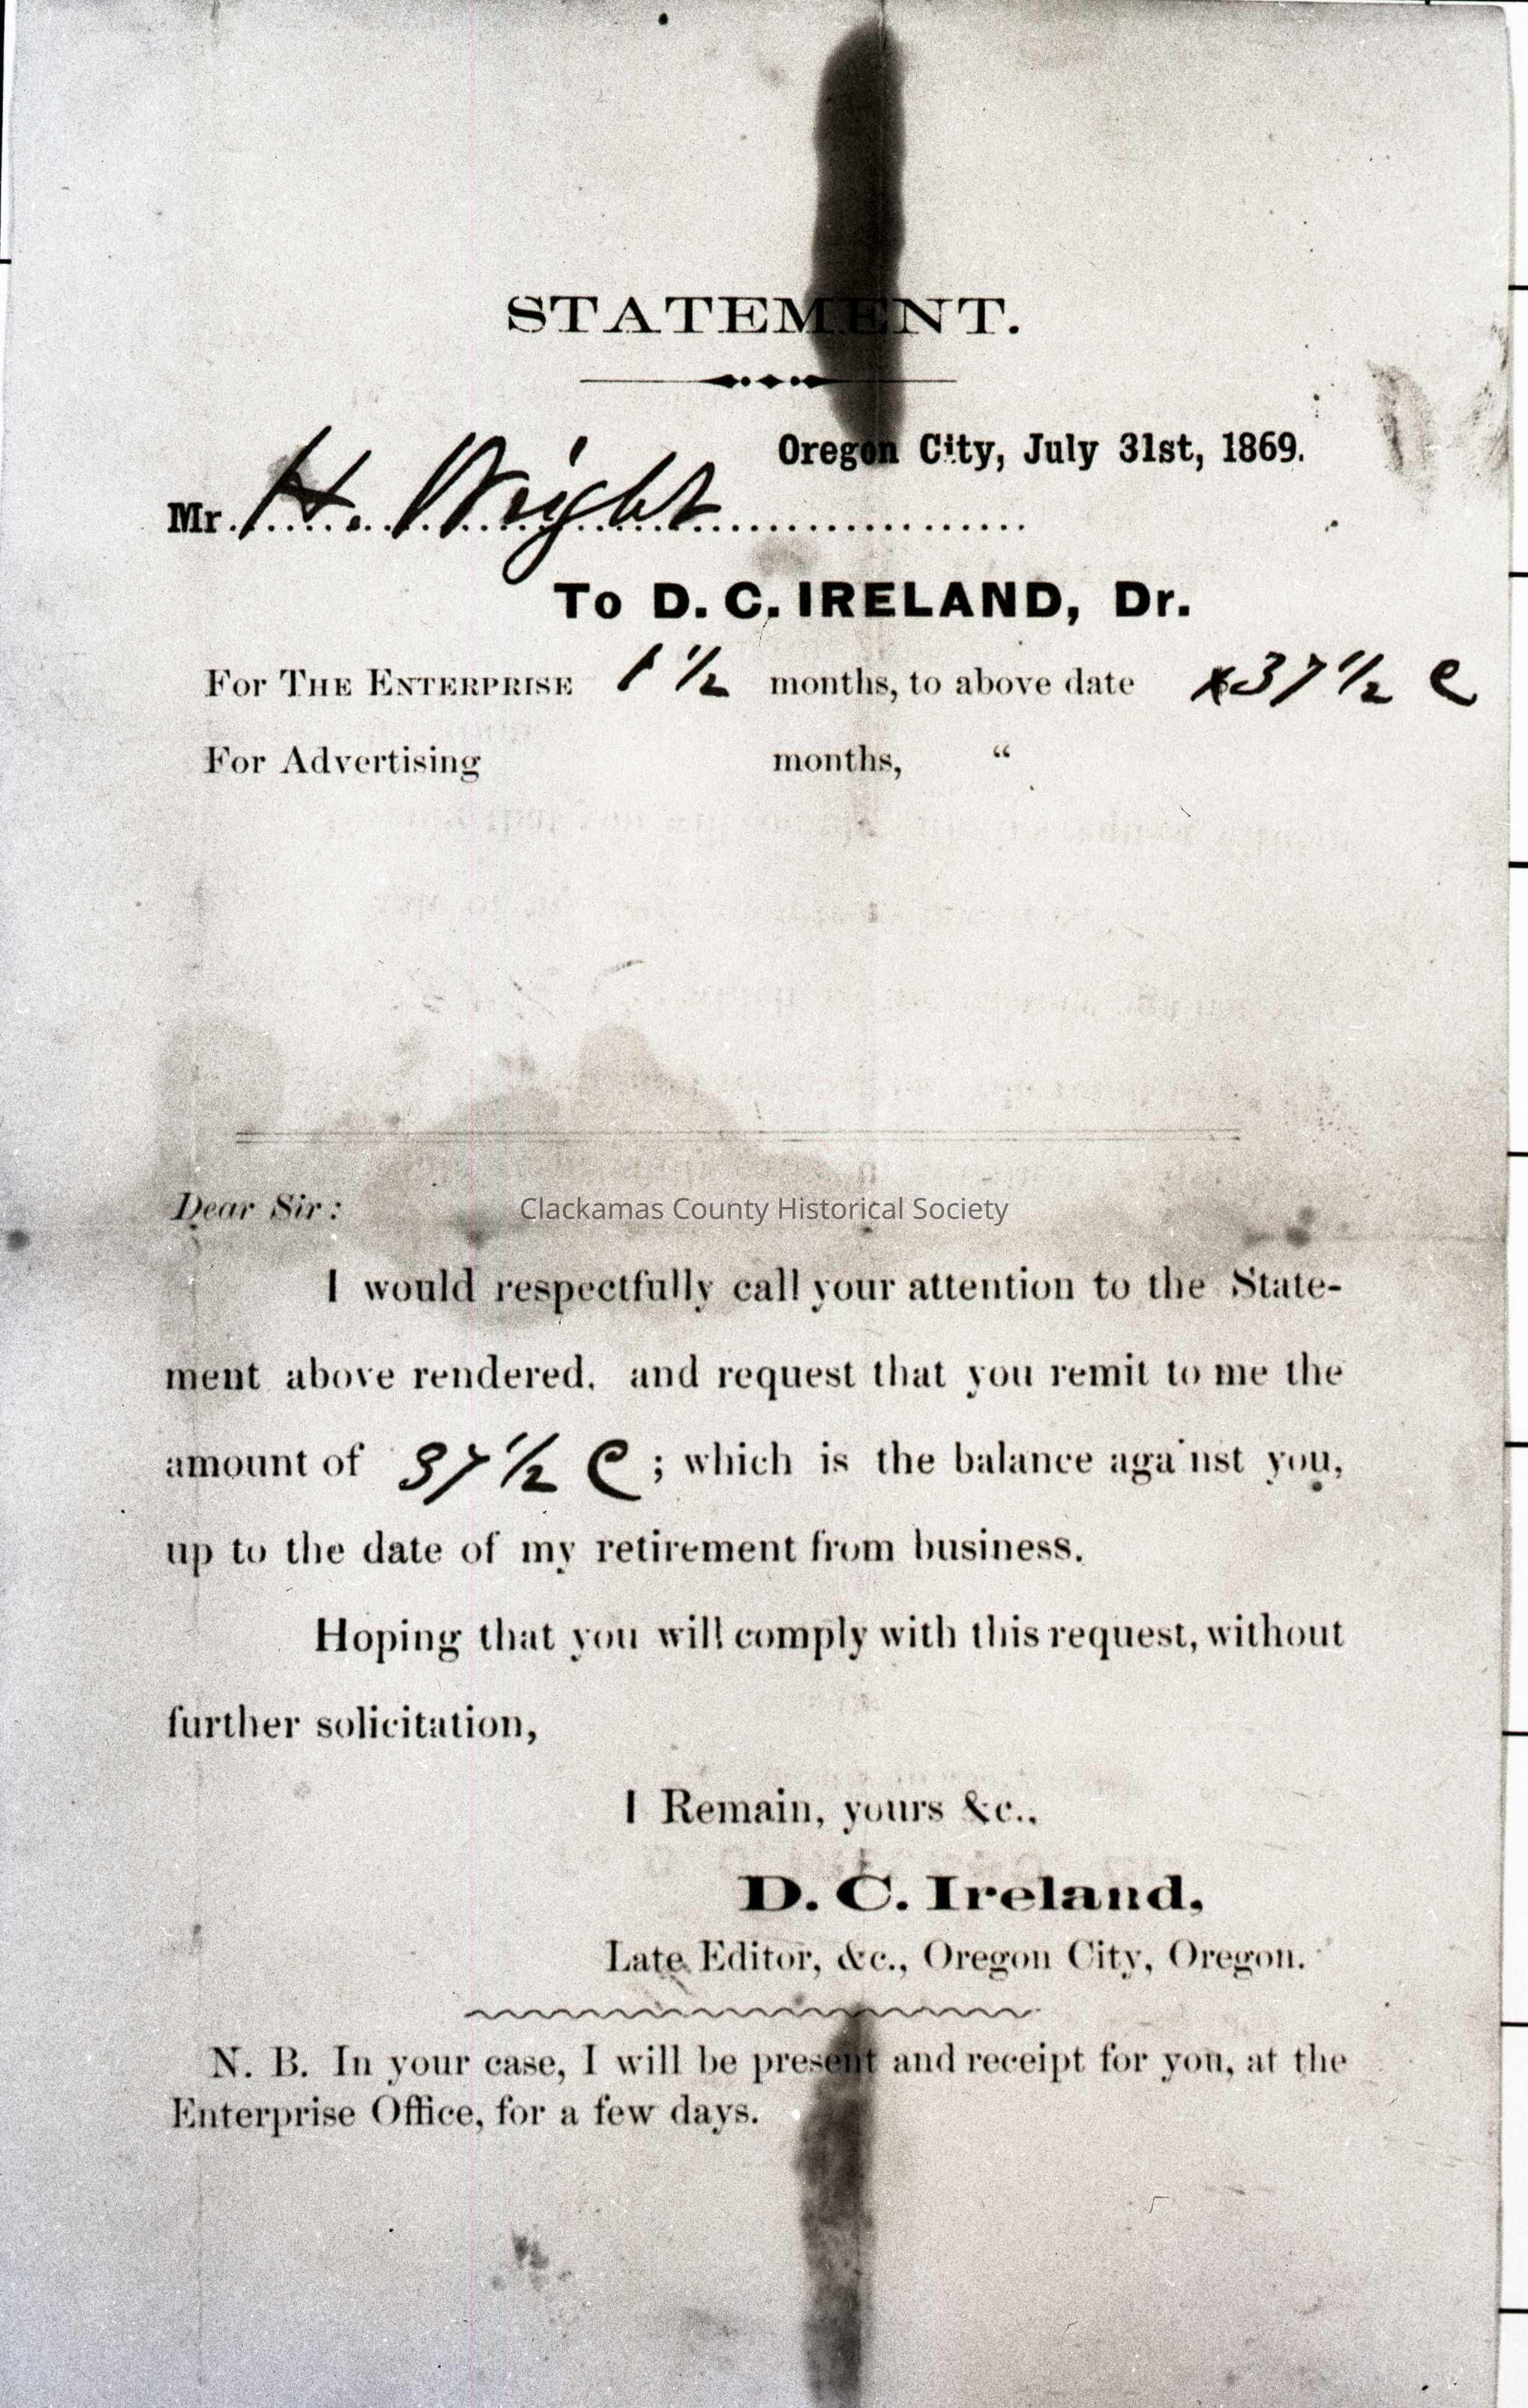 STATEMENT.
Oregon City, July 31st, 1869.
Mr. H. Wright
To D. C. IRELAND, Dr.
For THE ENTERPRISE 1 ½ months, to above date $37 ½ c
For Advertising months, “
Dear Sir:
Clackamas County Historical Society
I would respectfully call your attention to the State-
ment above rendered, and request that you remit to me the
amount of 37 ½ C ; which is the balance aga nst you,
up to the date of my retirement from business.
Hoping that you will comply with this request, without
further solicitation,
I Remain, yours &c.,
D. C. Ireland,
Late Editor, &c., Oregon City, Oregon.
N. B. In your case, I will be present and receipt for you, at the
Enterprise Office, for a few days.